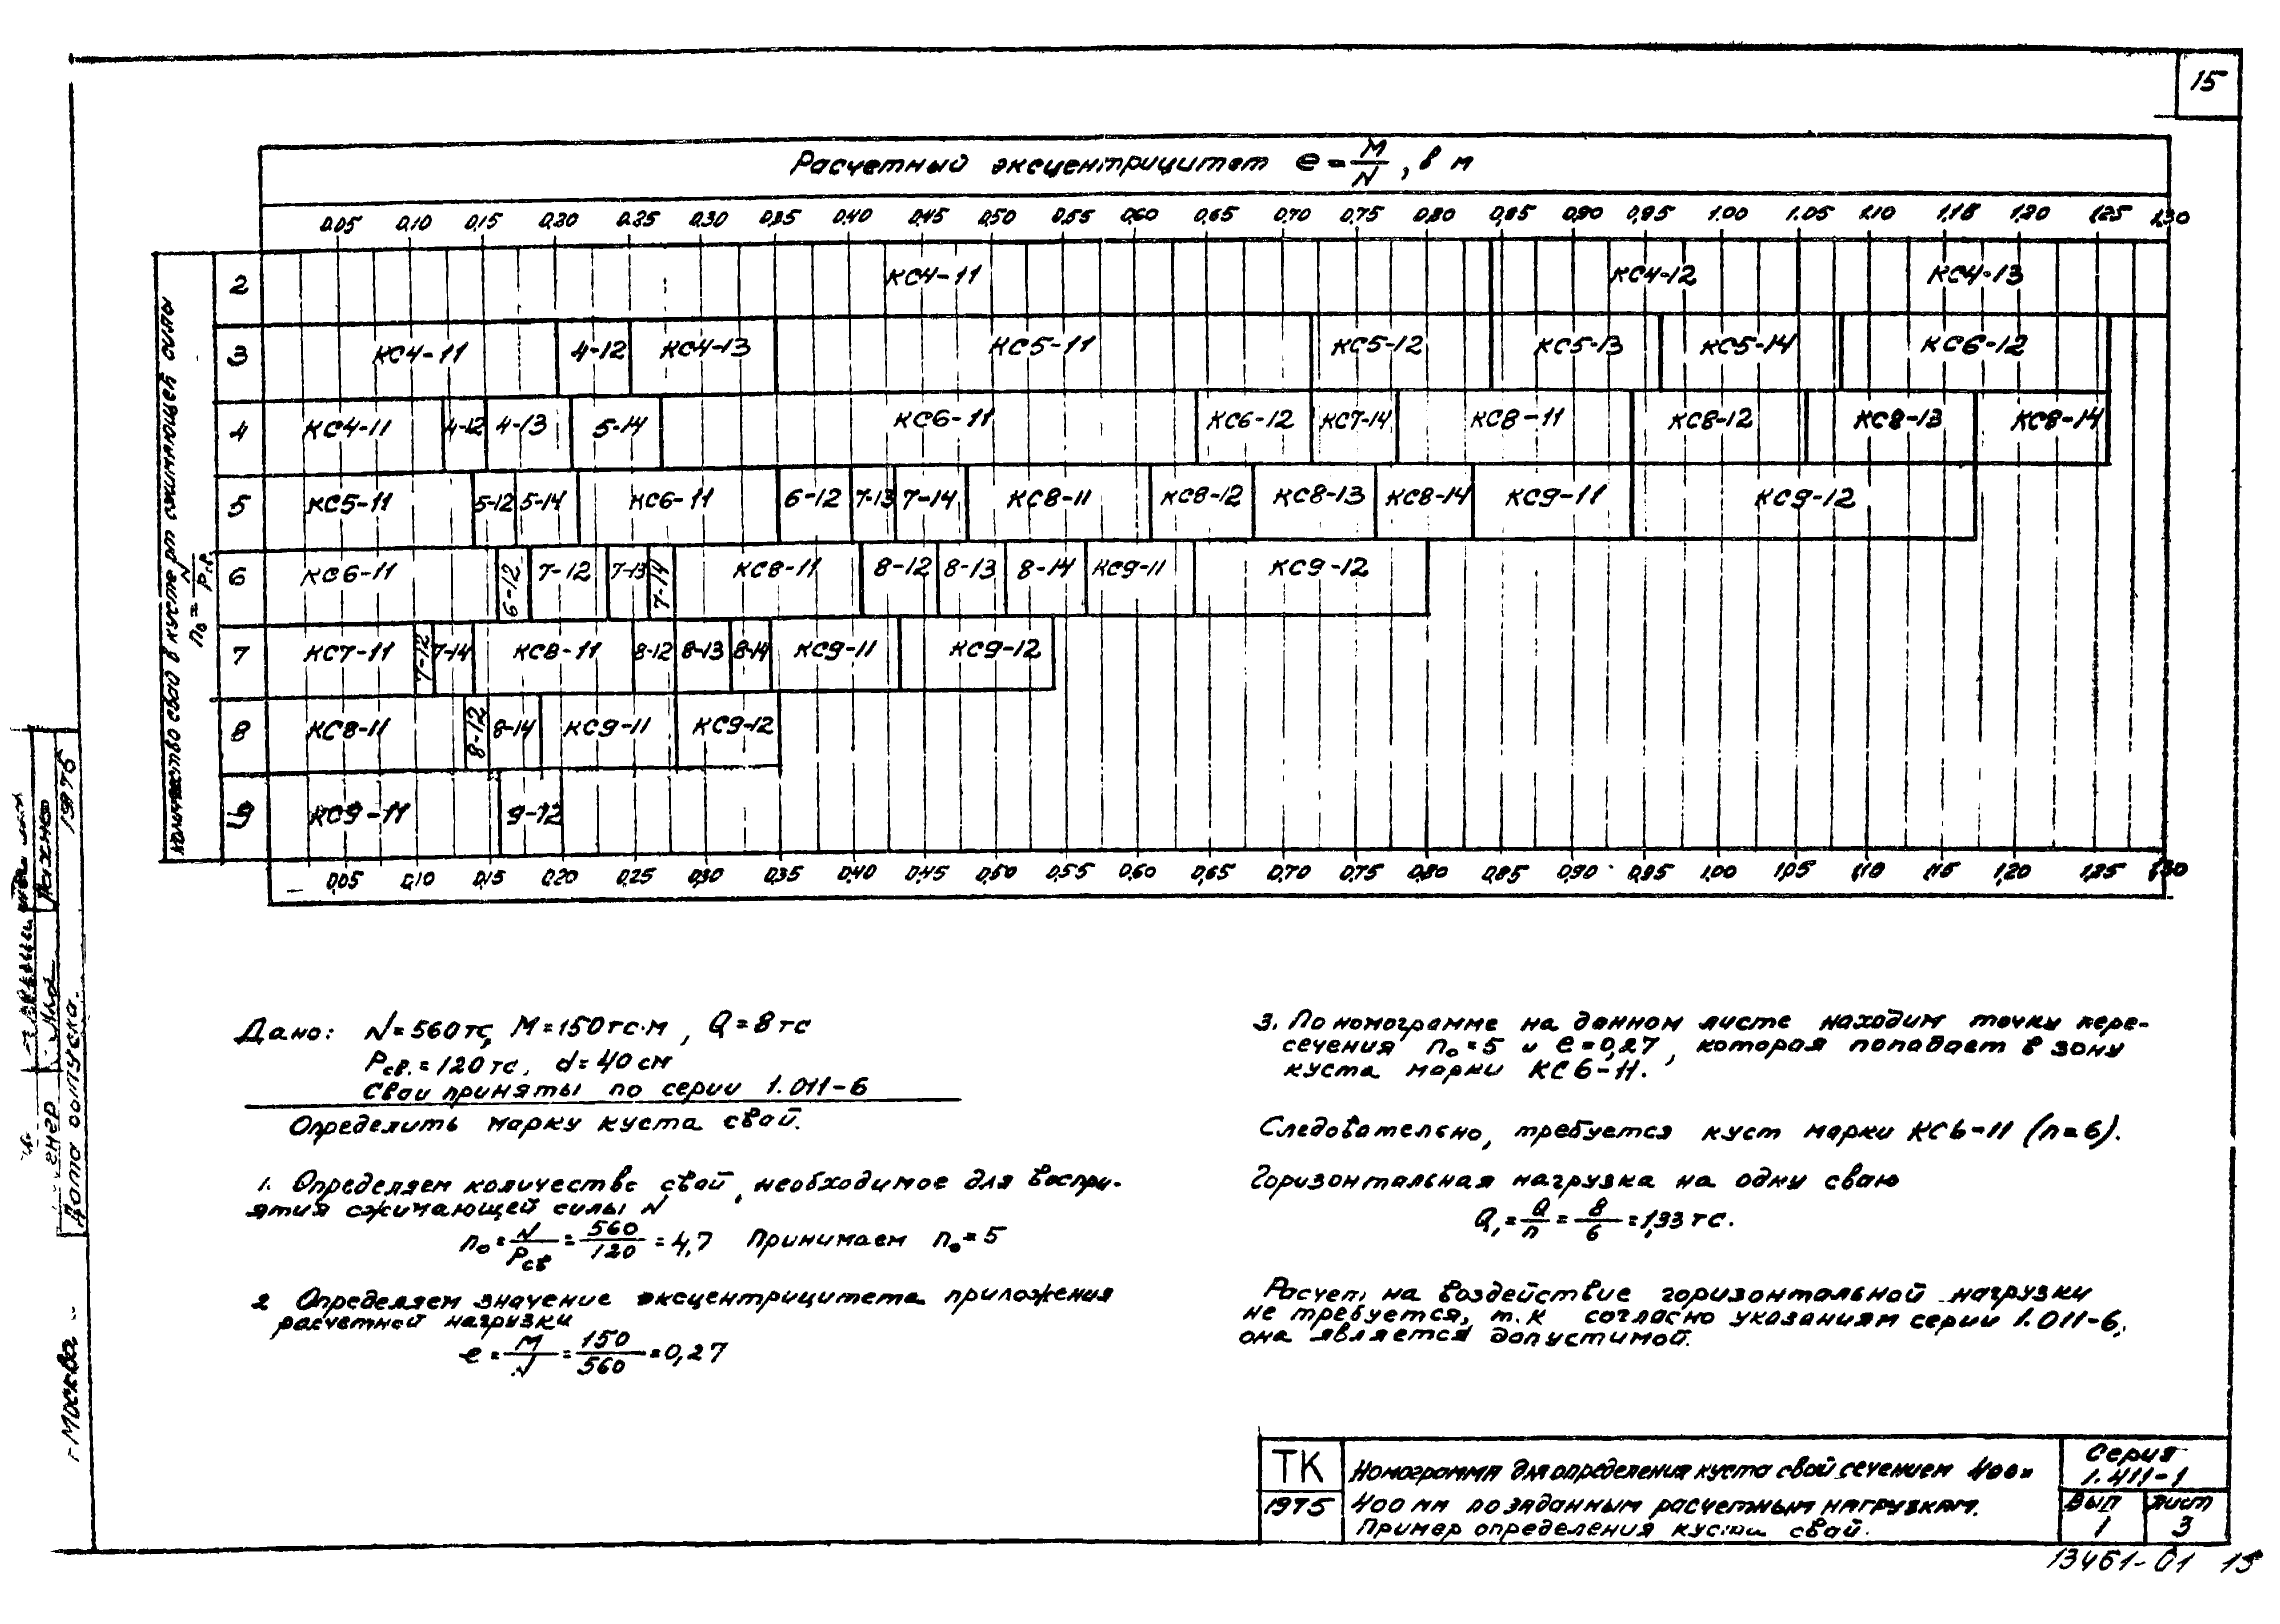 15
Расчетный эксцентрицитет e = M/N , в м
0,05 0,10 0,15 0,20 0,25 0,30 0,35 0,40 0,45 0,50 0,55 0,60 0,65 0,70 0,75 0,80 0,85 0,90 0,95 1.00 1.05 1.10 1,15 1,20 1,25 1,30
Количество свай в кусте от сжимающей силы
n₀ = N/Pсв.
2 КС4-11 КС4-12 КС4-13
3 КС4-11 4-12 КС4-13 КС5-11 КС5-12 КС5-13 КС5-14 КС6-12
4 КС4-11 4-12 4-13 5-14 КС6-11 КС6-12 КС7-14 КС8-11 КС8-12 КС8-13 КС8-14
5 КС5-11 5-12 5-14 КС6-11 6-12 7-13 7-14 КС8-11 КС8-12 КС8-13 КС8-14 КС9-11 КС9-12
6 КС6-11 6-12 7-12 7-13 7-14 КС8-11 8-12 8-13 8-14 КС9-11 КС9-12
7 КС7-11 7-12 7-14 КС8-11 8-12 8-13 8-14 КС9-11 КС9-12
8 КС8-11 8-12 8-14 КС9-11 КС9-12
9 КС9-11 9-12
0,05 0,10 0,15 0,20 0,25 0,30 0,35 0,40 0,45 0,50 0,55 0,60 0,65 0,70 0,75 0,80 0,85 0,90 0,95 1,00 1,05 1,10 1,15 1,20 1,25 1,30
Дано: N=560тс, M=150тс·м , Q=8тс
Pсв.=120тс, d=40см
Сваи приняты по серии 1.011-6
Определить марку куста свай.
1. Определяем количество свай, необходимое для воспри-
ятия сжимающей силы N
n₀ = N/Pсв = 560/120 = 4,7 Принимаем n₀=5
2 Определяем значение эксцентрицитета приложения
расчетной нагрузки
e = M/N = 150/560 = 0,27
3. По номограмме на данном листе находим точку пере-
сечения n₀=5 и e=0,27, которая попадает в зону
куста марки КС6-11.
Следовательно, требуется куст марки КС6-11 (n=6).
Горизонтальная нагрузка на одну сваю
Q₁ = Q/n = 8/6 = 1,33 тс.
Расчет на воздействие горизонтальной нагрузки
не требуется, т.к согласно указаниям серии 1.011-6,
она является допустимой.
ТК
1975
Номограмма для определения куста свай сечением 400×
400 мм по заданным расчетным нагрузкам.
Пример определения куста свай.
Серия
1.411-1
Вып
1
Лист
3
13461-01 15
Дата выпуска.
1975
г Москва